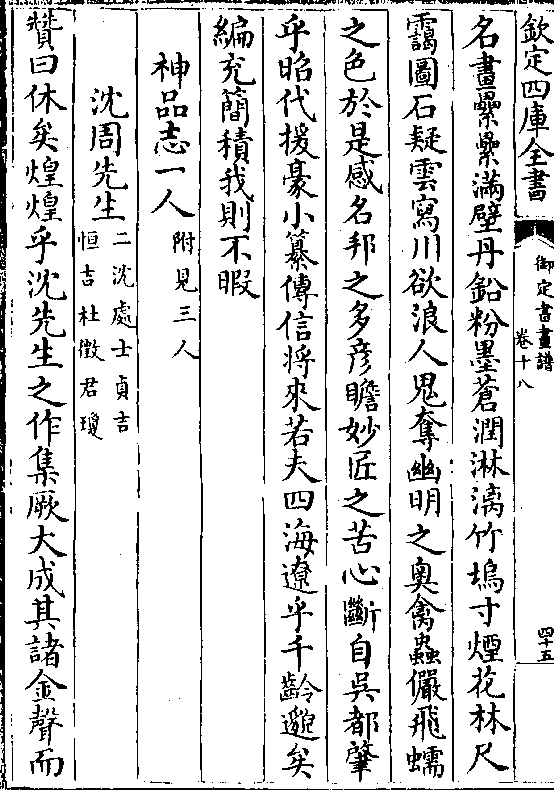 欽定四庫全書
御定書畫譜
卷十八
四十五
名畫纍纍滿壁丹鉛粉墨蒼潤淋漓竹塢寸煙花林尺
靄圖石疑雲寫川欲浪人鬼奪幽明之奧禽蟲儼飛蠕
之色於是感名邦之多彦瞻妙匠之苦心斷自吳都肇
乎昭代援豪小纂傳信將來若夫四海遼乎千齡邈矣
編充簡積我則不暇
神品志一人附見三人
沈周先生二沈處士貞吉
恒吉杜徵君瓊
贊曰休矣煌煌乎沈先生之作集厥大成其諸金聲而